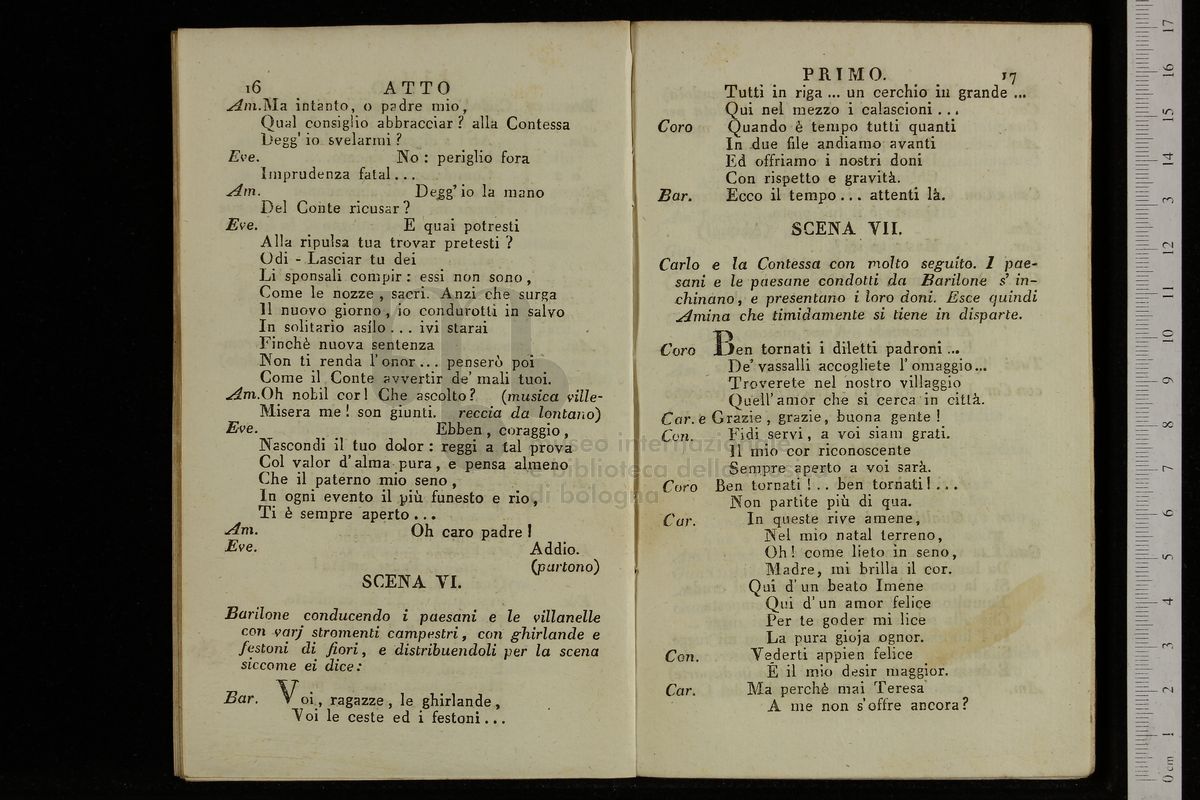 16 ATTO
Am. Ma intanto, o padre mio,
Qual consiglio abbracciar? alla Contessa
Degg' io svelarmi?
Eve. No: periglio fora
Imprudenza fatal...
Am. Degg' io la mano
Del Conte ricusar?
Eve. E quai potresti
Alla ripulsa tua trovar pretesti?
Odi - Lasciar tu dei
Li sponsali compir: essi non sono,
Come le nozze, sacri. Anzi che surga
Il nuovo giorno, io condurotti in salvo
In solitario asilo... ivi starai
Finchè nuova sentenza
Non ti renda l'onor... penserò poi
Come il Conte avvertir de' mali tuoi.
Am. Oh nobil cor! Che ascolto? (musica ville-
Misera me! son giunti. reccia da lontano)
Eve. Ebben, coraggio,
Nascondi il tuo dolor: reggi a tal prova
Col valor d'alma pura, e pensa almeno
Che il paterno mio seno,
In ogni evento il più funesto e rio,
Ti è sempre aperto...
Am. Oh caro padre!
Eve. Addio.
(partono)
SCENA VI.
Barilone conducendo i paesani e le villanelle
con varj stromenti campestri, con ghirlande e
festoni di fiori, e distribuendoli per la scena
siccome ei dice:
Bar. Voi, ragazze, le ghirlande,
Voi le ceste ed i festoni...
PRIMO. 17
Tutti in riga ... un cerchio in grande ...
Qui nel mezzo i calascioni...
Coro Quando è tempo tutti quanti
In due file andiamo avanti
Ed offriamo i nostri doni
Con rispetto e gravità.
Bar. Ecco il tempo... attenti là.
SCENA VII.
Carlo e la Contessa con molto seguito. I pae-
sani e le paesane condotti da Barilone s' in-
chinano, e presentano i loro doni. Esce quindi
Amina che timidamente si tiene in disparte.
Coro Ben tornati i diletti padroni...
De' vassalli accogliete l'omaggio...
Troverete nel nostro villaggio
Quell'amor che si cerca in città.
Car. e Grazie, grazie, buona gente!
Con. Fidi servi, a voi siam grati.
Il mio cor riconoscente
Sempre aperto a voi sarà.
Coro Ben tornati!.. ben tornati!...
Non partite più di qua.
Car. In queste rive amene,
Nel mio natal terreno,
Oh! come lieto in seno,
Madre, mi brilla il cor.
Qui d'un beato Imene
Qui d'un amor felice
Per te goder mi lice
La pura gioja ognor.
Con. Vederti appien felice
È il mio desir maggior.
Car. Ma perchè mai Teresa
A me non s'offre ancora?
museo internazionale
e biblioteca della musica
di bologna
0 cm 1 2 3 4 5 6 7 8 9 10 11 12 13 14 15 16 17